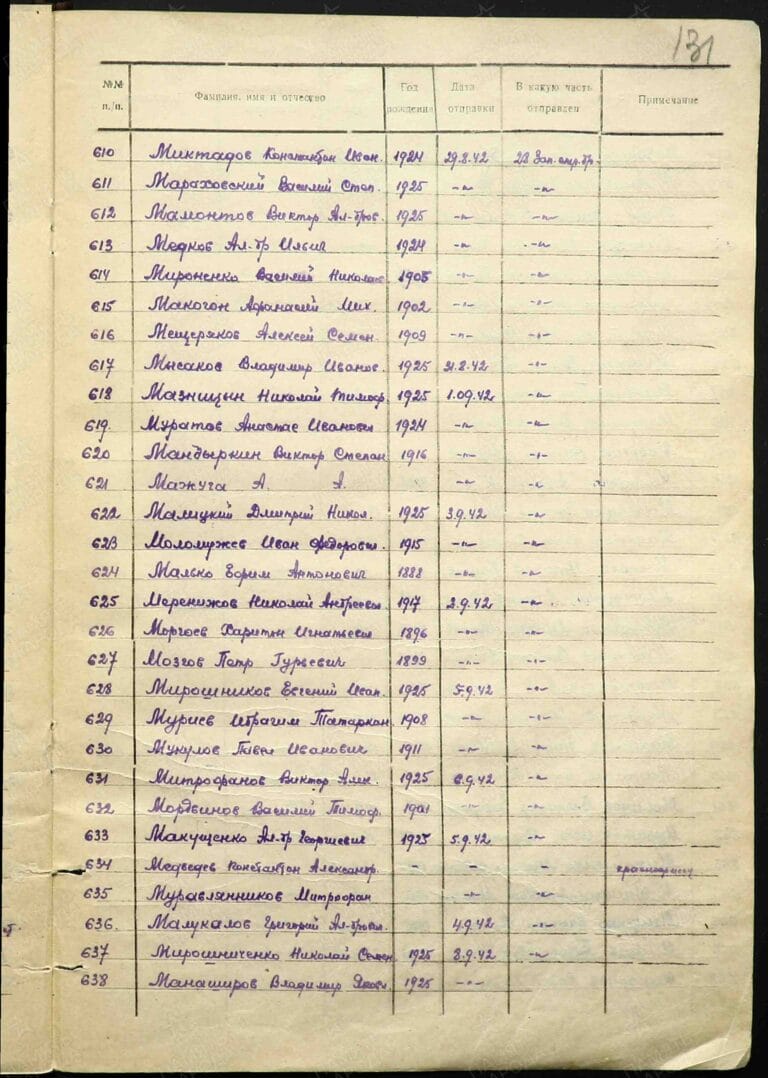 131
№№ п./п. Фамилия, имя и отчество Год рождения Дата отправки В какую часть отправлен Примечание
610 Миктадов Константин Иван. 1924 29.8.42 28 Зап. стр. бр.
611 Мараховский Василий Степ. 1925 -"- -"-
612 Мамонтов Виктор Ал-дров. 1925 -"- -"-
613 Медков Ал-др Ильич 1924 -"- -"-
614 Мироненко Василий Николае 1905 -"- -"-
615 Макогон Афанасий Мих. 1902 -"- -"-
616 Мещеряков Алексей Семен. 1909 -"- -"-
617 Мысаков Владимир Иванов. 1925 31.8.42 -"-
618 Мазницын Николай Тимоф. 1925 1.09.42 -"-
619. Муратов Анастас Иванович 1924 -"- -"-
620 Мандыркин Виктор Степан 1916 -"- -"-
621 Мажуга А. А. -"- -"-
622 Малицкий Дмитрий Никол. 1925 3.9.42 -"-
623 Моломужев Иван Федорович. 1915 -"- -"-
624 Малько Ефрим Антонович 1888 -"- -"-
625 Меренижов Николай Андреевич 1917 2.9.42 -"-
626 Моргоев Харитон Игнатьевич 1896 -"- -"-
627 Мозгов Петр Гурьевич 1899 -"- -"-
628 Мирошников Евгений Иван. 1925 5.9.42 -"-
629 Муриев Ибрагим Татаркан 1908 -"- -"-
630 Мукулов Павел Иванович 1911 -"- -"-
631 Митрофанов Виктор Алек. 1925 6.9.42 -"-
632 Мордвинов Василий Тимоф. 1901 -"- -"-
633 Макущенко Ал-др Георгиевич 1925 5.9.42 -"-
634 Медведев Константин Александр. - - -
635 Муравлянников Митрофан -"- -"-
636. Малукалов Григорий Ал-дров. 4.9.42 -"-
637 Мирошниченко Николай Семен 1925 8.9.42 -"-
638 Манаширов Владимир Яковл. 1925 -"-